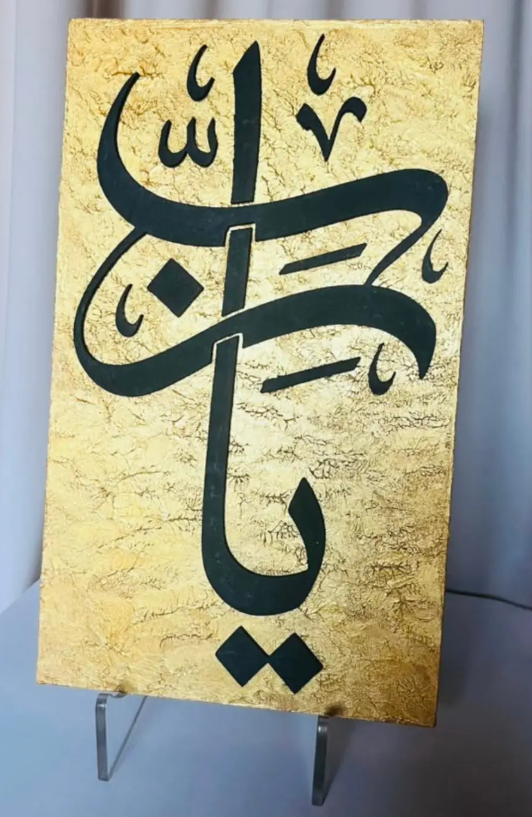 يا ربّ